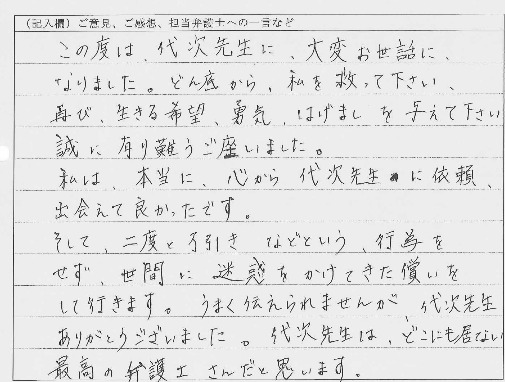 （記入欄）ご意見、ご感想、担当弁護士への一言など
この度は、代次先生に、大変お世話に、
なりました。どん底から、私を救って下さい、
再び、生きる希望、勇気、はげましを与えて下さい
誠に有り難うご座いました。
私は、本当に、心から代次先生に依頼、
出会えて良かったです。
そして、二度と万引きなどという、行為を
せず、世間に迷惑をかけてきた償いを
して行きます。うまく伝えられませんが、代次先生
ありがとうございました。代次先生は、どこにも居ない
最高の弁護士さんだと思います。